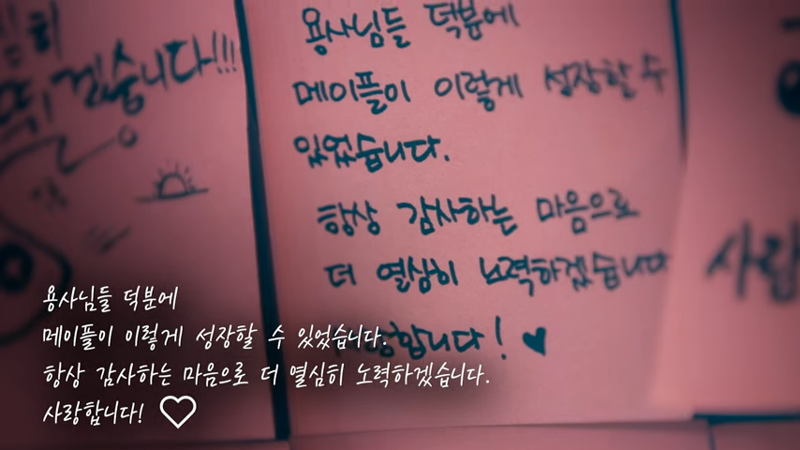 겠습니다!!!
용사님들 덕분에
메이플이 이렇게 성장할 수
있었습니다.
항상 감사하는 마음으로
더 열심히 노력하겠습니다
합니다! ♥
사랑
용사님들 덕분에
메이플이 이렇게 성장할 수 있었습니다.
항상 감사하는 마음으로 더 열심히 노력하겠습니다.
사랑합니다! ♡